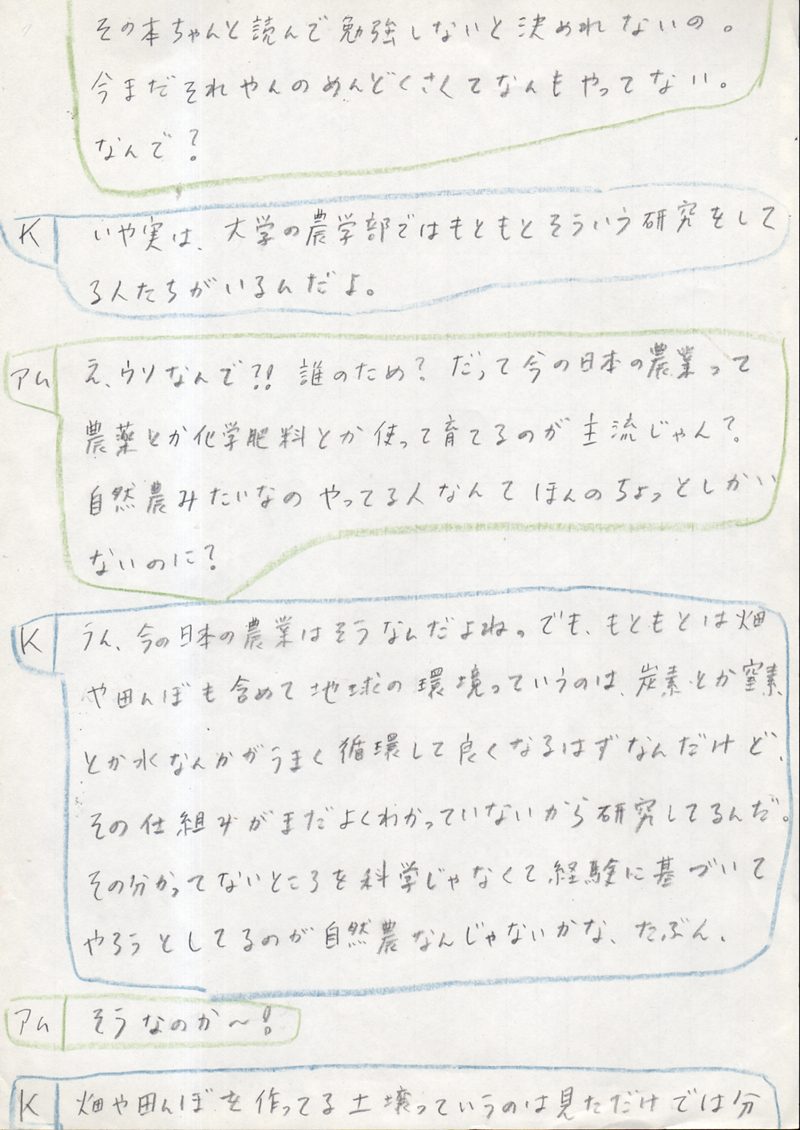 その本ちゃんと読んで勉強しないと決めれないの。
今まだそれやんのめんどくさくてなんもやってない。
なんで?
K いや実は、大学の農学部ではもともとそういう研究をして
る人たちがいるんだよ。
アム え、ウソなんで?!誰のため?だって今の日本の農業って
農薬とか化学肥料とか使って育てるのが主流じゃん?
自然農みたいなのやってる人なんてほんのちょっとしかい
ないのに?
K うん、今の日本の農業はそうなんだよね。でも、もともとは畑
や田んぼも含めて地球の環境っていうのは、炭素とか窒素
とか水なんかがうまく循環して良くなるはずなんだけど、
その仕組みがまだよくわかっていないから研究してるんだ。
その分かってないところを科学じゃなくて経験に基づいて
やろうとしてるのが自然農なんじゃないかな、たぶん、
アム そうなのか〜!
K 畑や田んぼを作ってる土壌っていうのは見ただけでは分